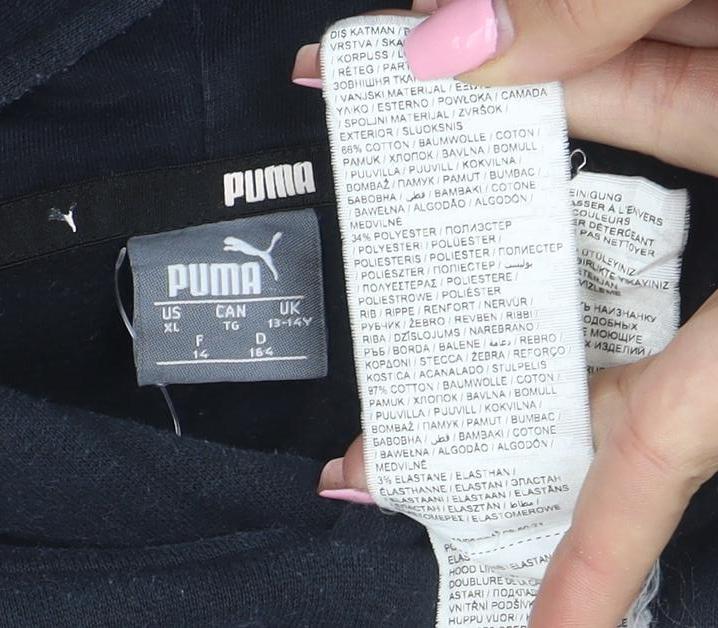 PUMA
PUMA
US CAN UK
XL TG 13-14Y
F D
14 164
DIŞ KATMAN /
VRSTVA /
/ KORPUSS /
/ RÉTEG /
ЗОВНІШНЯ
/ VANJSKI MATERIJAL /
ΥΛΙΚΟ / ESTERNO / POWŁOKA / CAMADA
/ SPOLJNI MATERIJAL / ZVRŠOK /
EXTERIOR / SLUOKSNIS
66% COTTON / BAUMWOLLE / COTON /
PAMUK / ХЛОПОК / BAVLNA / BOMULL
/ PUUVILLA / PUUVILL / KOKVILNA /
BOMBAŽ / ПАМУК / PAMUT / BUMBAC /
БАВОВНА / قطن / ΒΑΜΒΑΚΙ / COTONE
/ BAWEŁNA / ALGODÃO / ALGODÓN /
MEDVILNĖ
34% POLYESTER / ПОЛИЭСТЕР
/ POLYESTERI / POLÜESTER /
POLIESTERIS / POLIESTER / ПОЛИЕСТЕР
/ POLIÉSZTER / ПОЛІЕСТЕР / بوليستر
/ ΠΟΛΥΕΣΤΕΡΑΣ / POLIESTERE /
POLIESTROWE / POLIÉSTER
RIB / RIPPE / RENFORT / NERVÜR /
РУБЧИК / ŽEBRO / REVBEN / RIBBI /
RIBA / DZĪSLOJUMS / NAREBRANO /
РЪБ / BORDA / BALENE / دعامة / REBRO /
ΚΟΡΔΟΝΙ / STECCA / ŻEBRA / REFORÇO /
KOSTICA / ACANALADO / STULPELIS
97% COTTON / BAUMWOLLE / COTON /
PAMUK / ХЛОПОК / BAVLNA / BOMULL
/ PUUVILLA / PUUVILL / KOKVILNA /
BOMBAŽ / ПАМУК / PAMUT / BUMBAC /
БАВОВНА / قطن / ΒΑΜΒΑΚΙ / COTONE
/ BAWEŁNA / ALGODÃO / ALGODÓN /
MEDVILNĖ
3% ELASTANE / ELASTHAN /
ÉLASTHANNE / ELASTAN / ЭЛАСТАН
/ ELASTAANI / ELASTAAN / ELASTĀNS
/ ЕЛАСТАН / ELASZTÁN / مطاط /
ELASTOMEROWE
HOOD
DOUBLURE DE LA
ASTARI /
VNITŘNÍ
HUPPU VUORI /
À L'ENVERS
COULEURS
DETERGENT
PAS NETTOYER
ÜTÜLEYİNİZ
YIKAYINIZ
НАИЗНАНКУ
МОЮЩИЕ
ИЗДЕЛИЙ